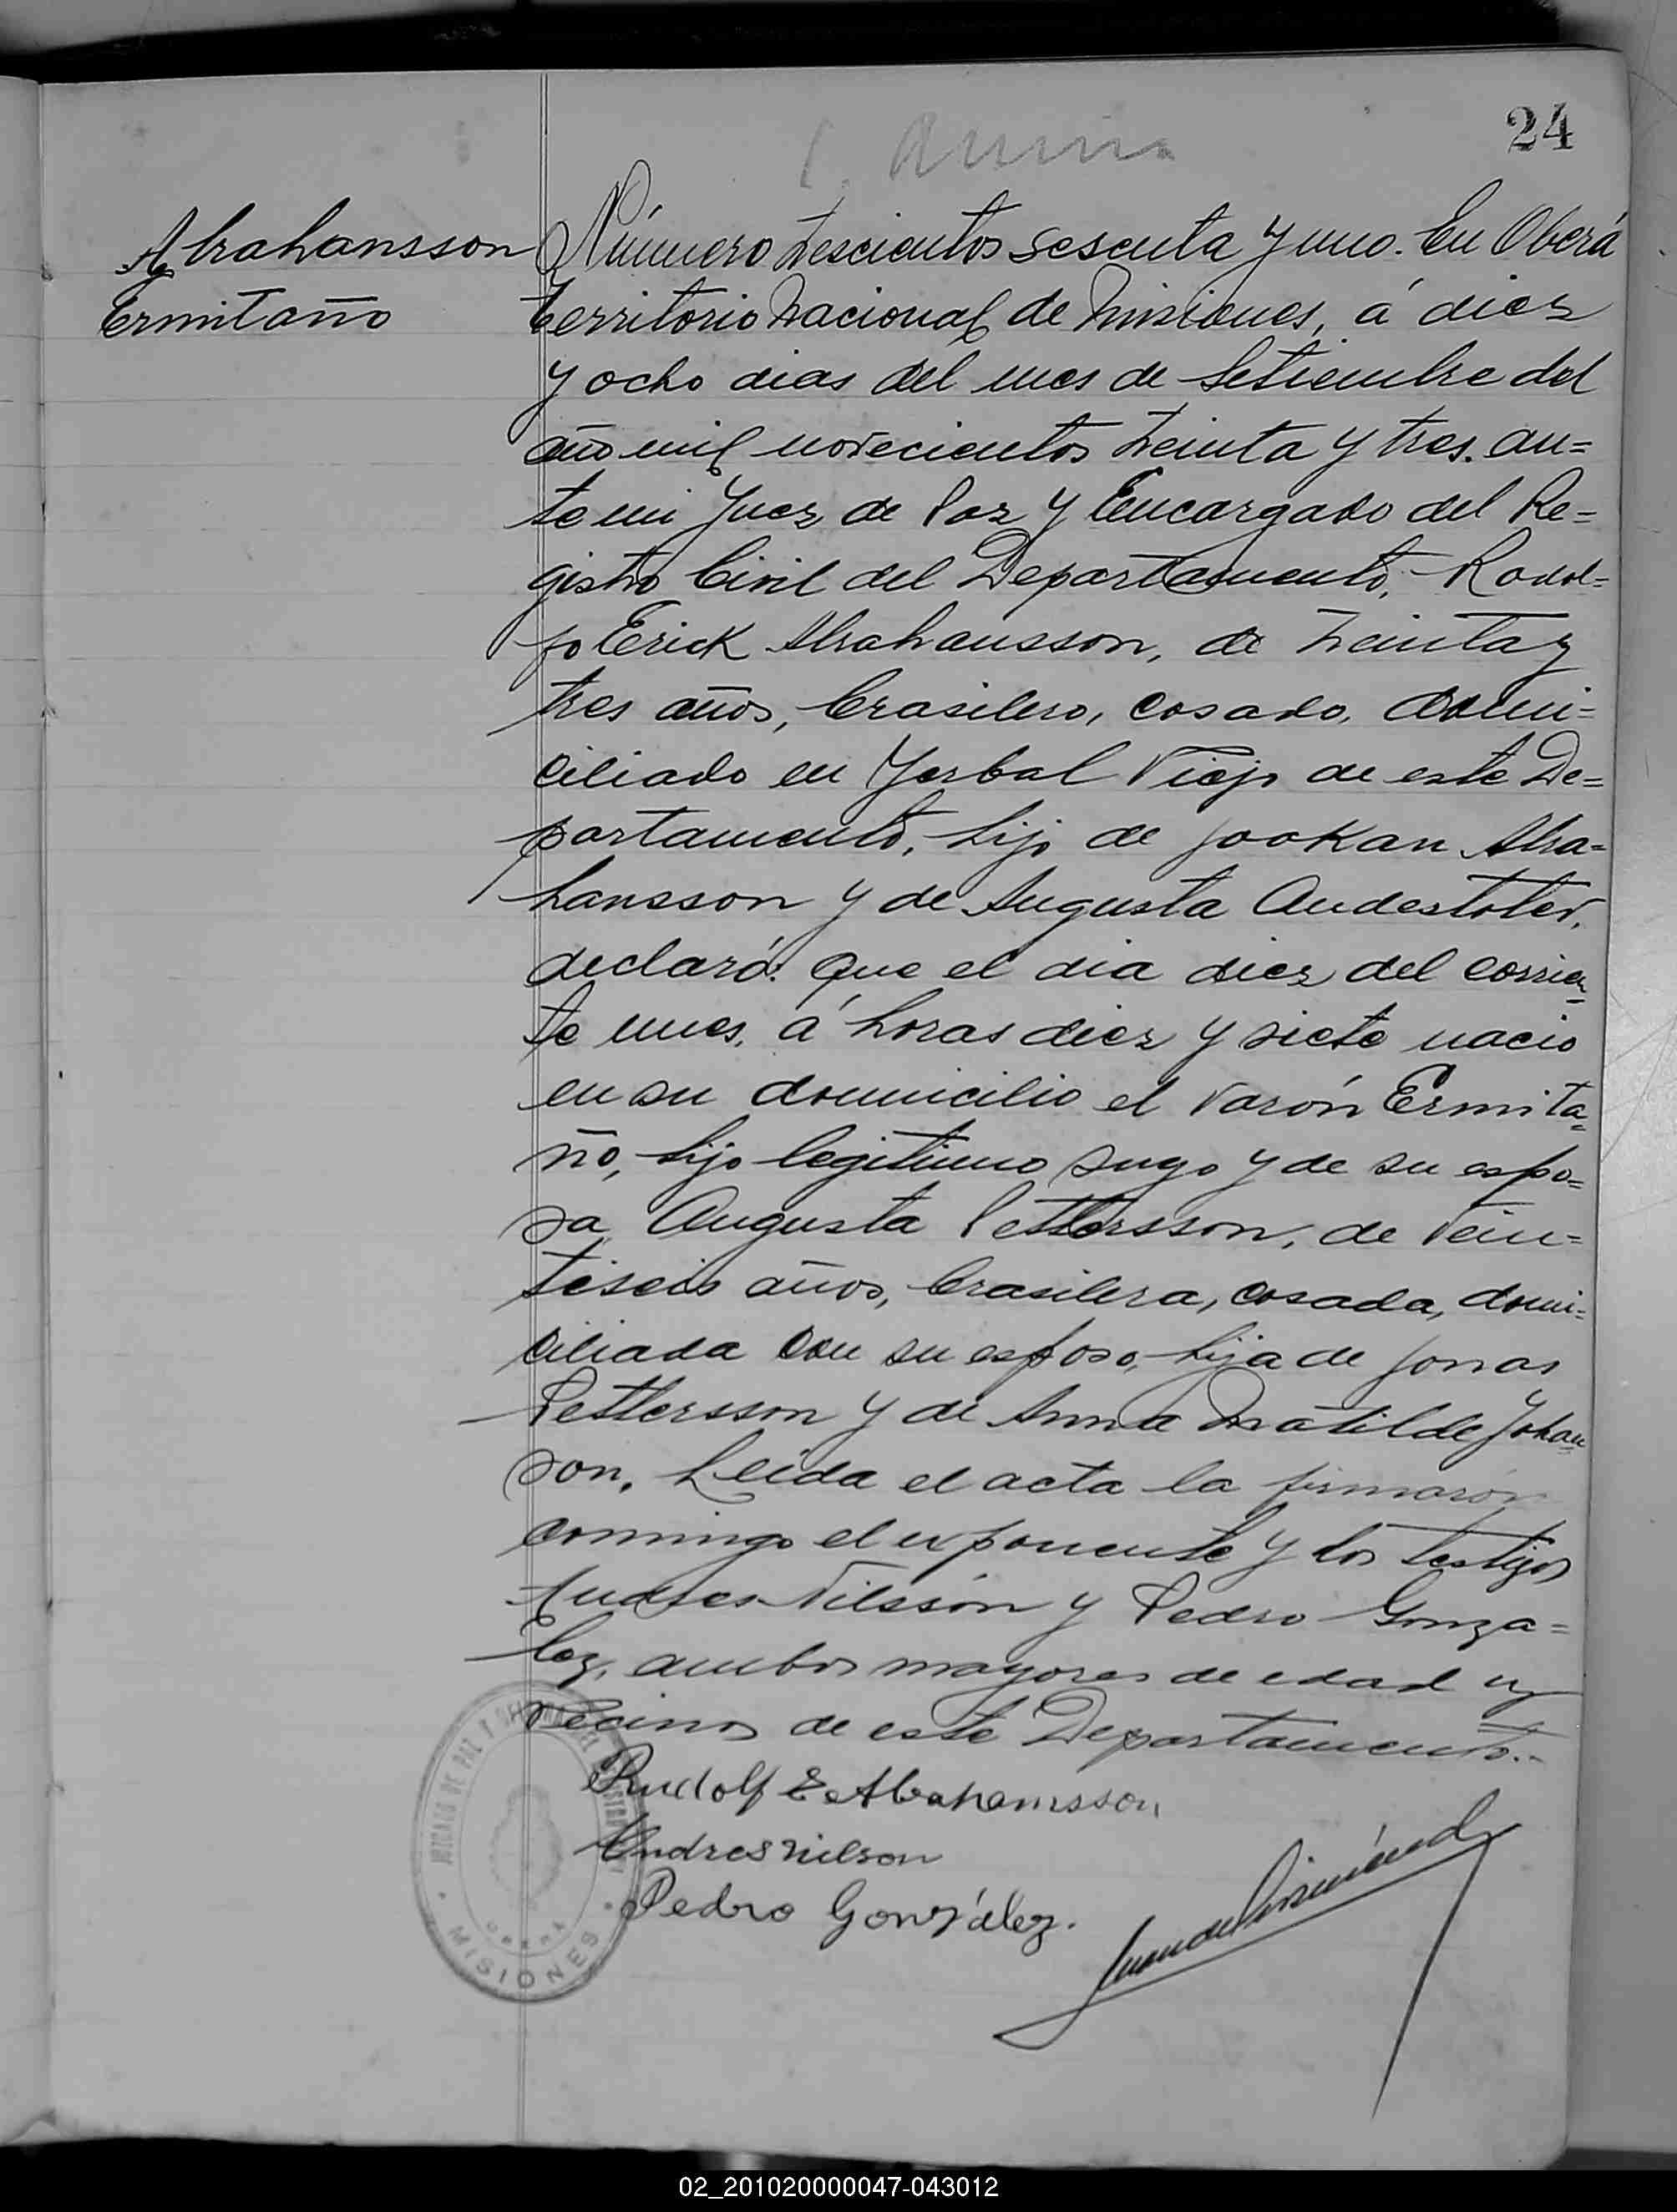 24
Abrahansson
Ermitaño
Número trescientos sesenta y uno. En Oberá
territorio nacional de Misiones, á diez
y ocho dias del mes de Setiembre del
año mil novecientos treinta y tres. an=
te mi Juez de Paz y Encargado del Re=
gistro Civil del Departamento, Rodol=
fo Erick Abrahansson, de treinta y
tres años, brasilero, casado, domi=
ciliado en Yerbal Viejo de este De=
partamento, hijo de Jookan Abra=
hansson y de Augusta Andestoter,
declaró: Que el dia diez del corrien=
te mes, á horas diez y siete nacio
en su domicilio el varón Ermita=
ño, hijo legitimo suyo y de su espo=
sa Augusta Pettersson, de vein=
tiseis años, brasilera, casada, domi=
ciliada con su esposo, hija de Jonas
Pettersson y de Anna Matilde Johan=
son. Leida el acta la firmarón
conmigo el exponente y los testigos
Andres Nilssón y Pedro Gonza=
lez, ambos mayores de edad y
vecinos de este Departamento.-
Rudolf E Abrahamsson
Andres Nilson
Pedro González.
JUZGADO DE PAZ Y
MISIONES
02_201020000047-043012